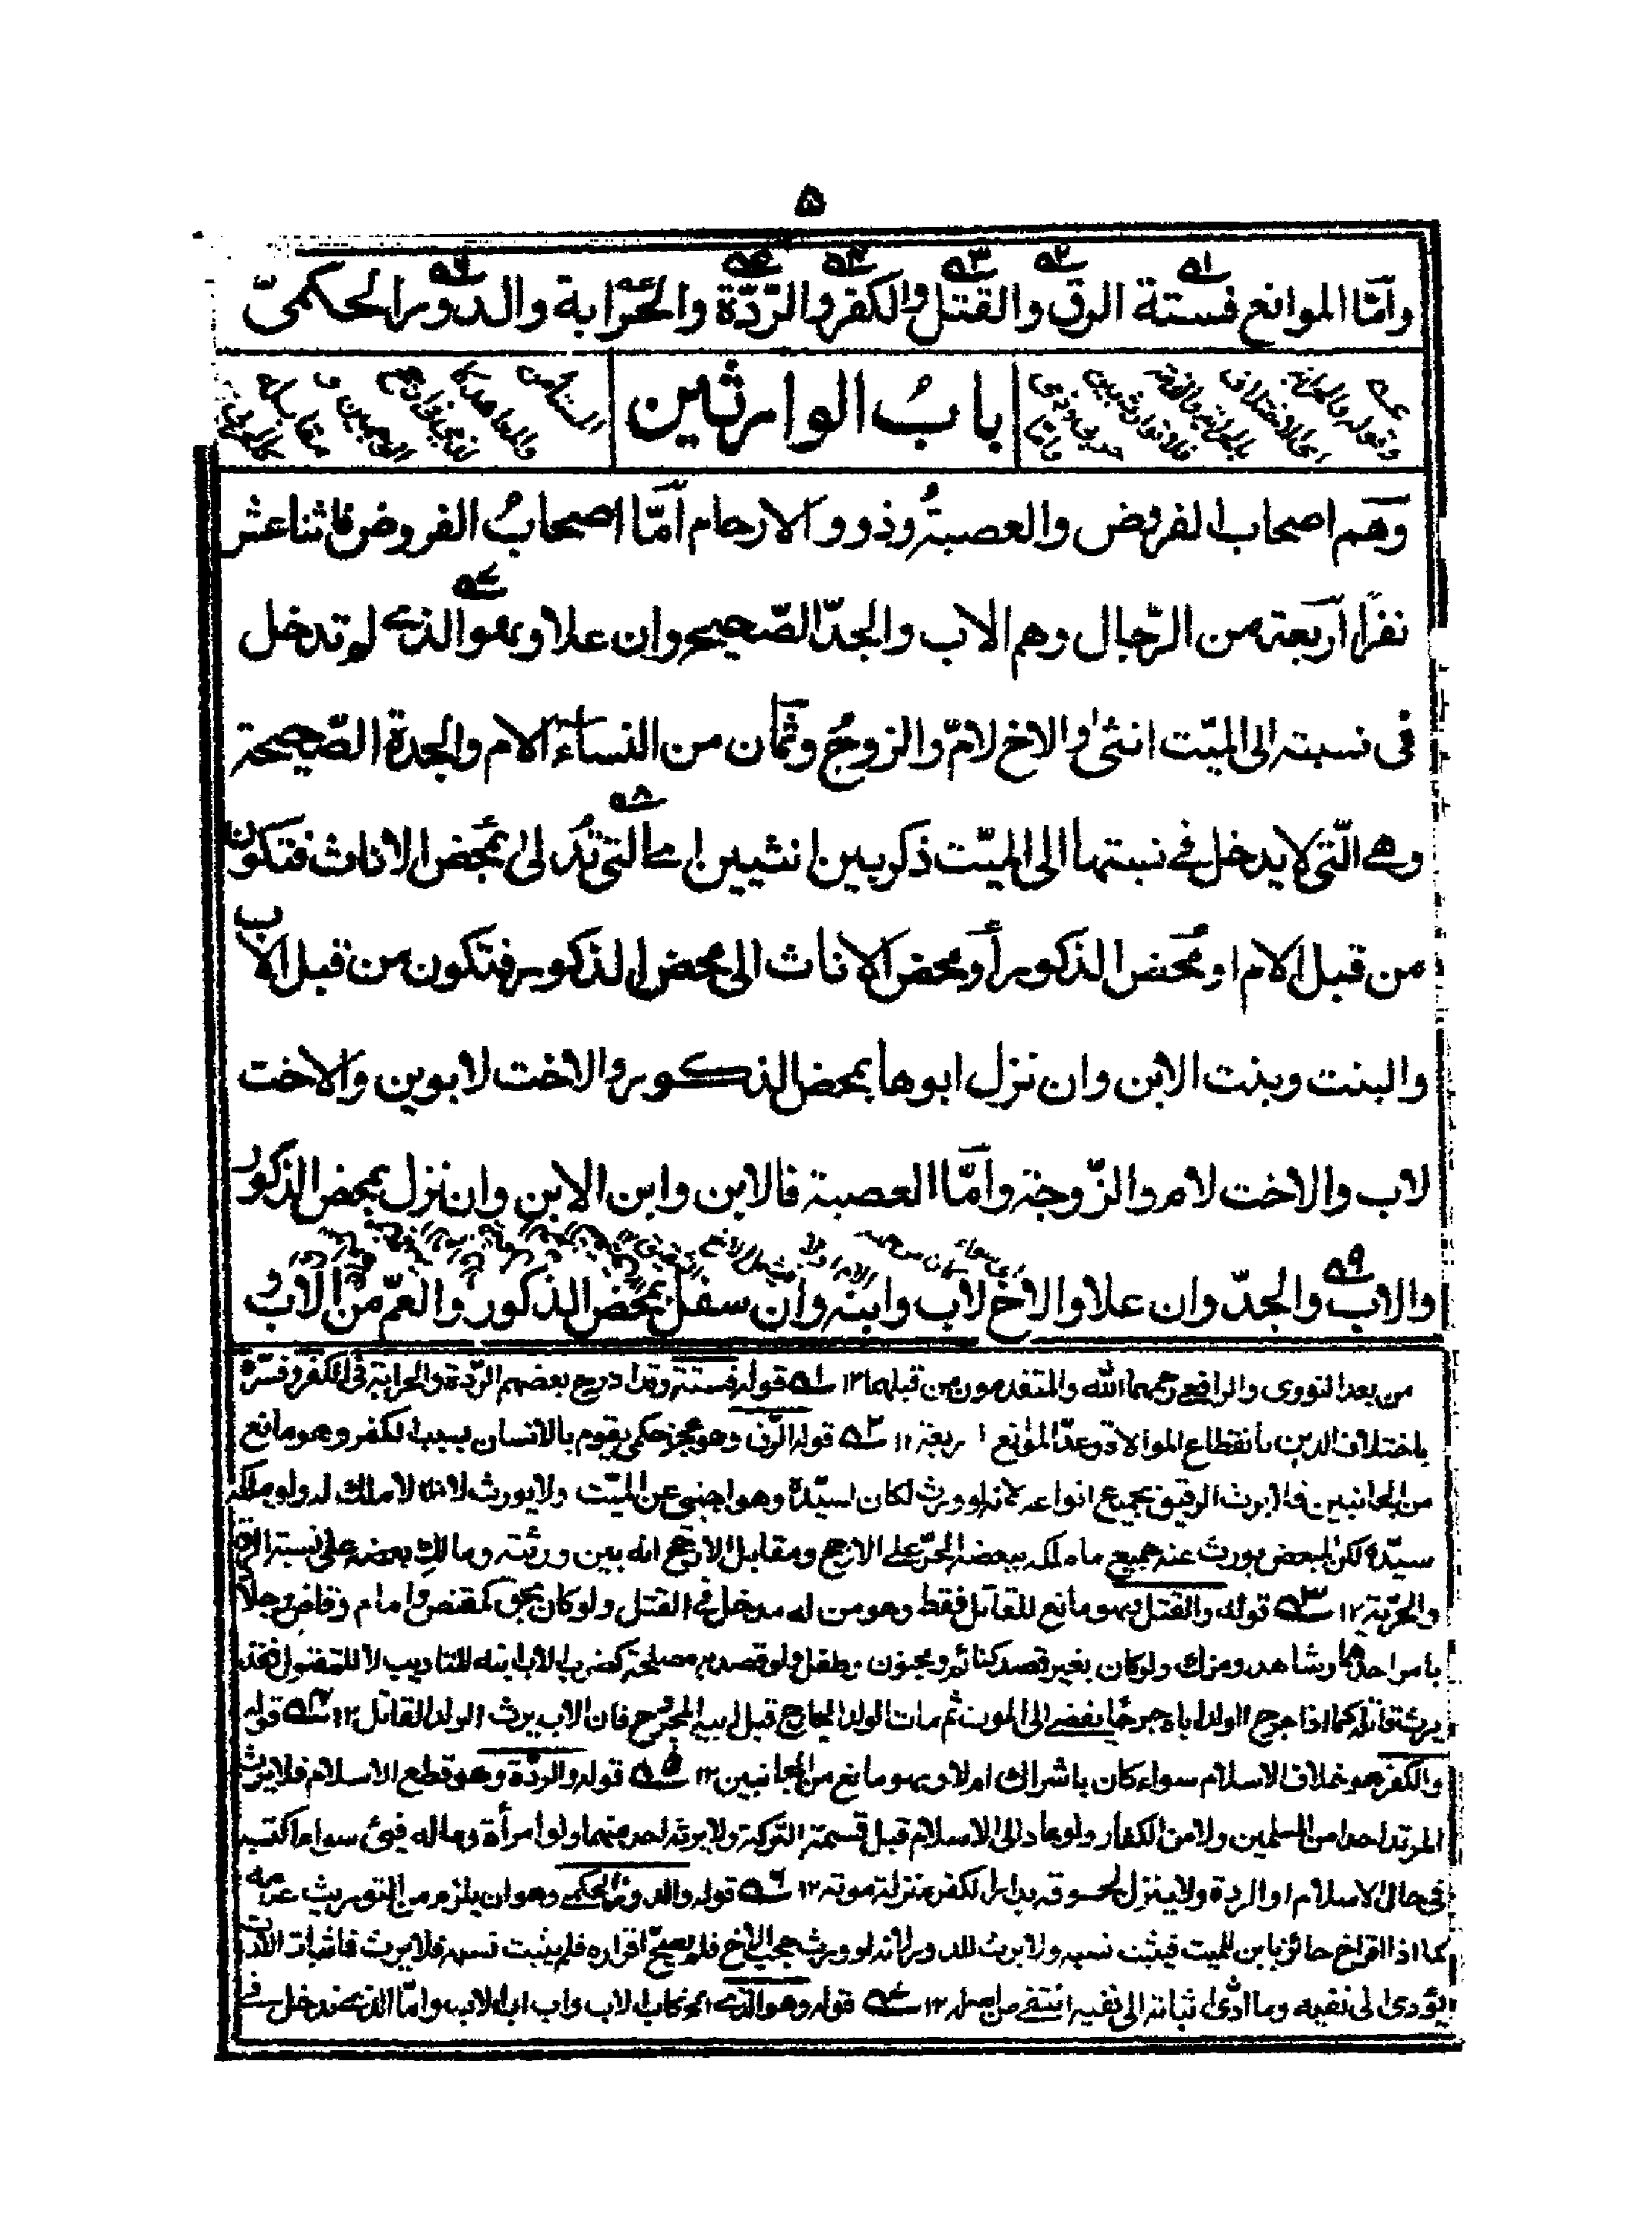 ۵
وأمّا الموانع فستة الرق والقتل والكفر والرّدّة والحرابة والدّور الحكمىّ
بابُ الوارثين
وهم اصحاب الفروض والعصبة وذوو الارحام أمّا اصحابُ الفروض فاثنا عشر
نفرًا أربعة من الرّجال وهم الاب والجدّ الصّحيح وإن علا وهو الذى لم تدخل
فى نسبته الى الميّت انثىٰ والاخ لامّ والزوجُ وثمان من النساء الام والجدة الصّحيحة
وهى الّتى لا يدخل فى نسبتها الى الميّت ذكر بين انثيين اى التى تُدلىٰ بمحض الاناث فتكون
من قبل الام او بمحض الذكور أو بمحض الاناث الى محض الذكور فتكون من قبل الاب
والبنت وبنت الابن وان نزل ابوها بمحض الذكور والاخت لابوين والاخت
لاب والاخت لام والزّوجة وأمّا العصبة فالابن وابن الابن وان نزل بمحض الذكور
والاب والجدّ وان علا والاخ لاب وابنه وان سفل بمحض الذكور والعمّ من الاب
من بعد النووى والرافعى رحمهما الله والمتقدمون من قبلهما ١٢ ۵۱ قوله فستة وقد ادرج بعضهم الرّدة والحرابة فى الكفر وفسّره
باختلاف الدين بانقطاع الموالاة وعدّ الموانع اربعة ١٢ ۵۲ قوله الرق وهو عجز حكمى يقوم بالانسان بسبب الكفر وهو مانع
من الجانبين فلا يرث الرقيق بجميع انواعه لانه لو ورث لكان لسيّده وهو اجنبى عن الميّت ولا يورث لانه لا ملك له ولو ملكه
سيّده لكن المبعض يورث عنه جميع ما ملكه ببعضه الحرّ على الارجح ومقابل الارجح انه بين ورثته ومالك بعضه على نسبة الرق
والحرّية ١٢ ۵۳ قوله والقتل وهو مانع للقاتل فقط وهو من له مدخل فى القتل ولو كان بحق كمقتص وامام وقاض وجلاد
بامر احدهما وشاهد ومزك ولو كان بغير قصد كنائم ومجنون وطفل ولو قصد به مصلحة كضرب الاب ابنه للتاديب لا للمقتول فقد
يرث قاتله كما اذا جرح الولد اباه جرحًا يفضى الى الموت ثم مات الولد الجارح قبل ابيه المجروح فان الاب يرث الولد القاتل ١٢ ۵۴ قوله
والكفر هو خلاف الاسلام سواء كان باشراك ام لا وهو مانع من الجانبين ١٢ ۵۵ قوله والردّة وهو قطع الاسلام فلا يرث
المرتد احدا من المسلمين ولا من الكفار ولو عاد الى الاسلام قبل قسمة التركة ولا يرثه احد منهما ولو امرأة وماله فىئ سواء اكتسبه
فى حال الاسلام او الردة ولا ينزل لحوقه بدار الكفر منزلة موته ١٢ ۵۶ قوله والدور الحكمى وهو ان يلزم من التوريث عدمه
كما اذا اقر اخ حائز بابن للميت فيثبت نسبه ولا يرث للدور لانه لو ورث حجب الاخ فلم يصحّ اقراره فلم يثبت نسبه فلا يرث فاثبات الارث
يؤدى الى نفيه وما ادّى اثباته الى نفيه انتفى من اصله ١٢ ۵۷ قوله وهو الذى الخ كاب الاب واب اب الاب وامّا الذى تدخل فى